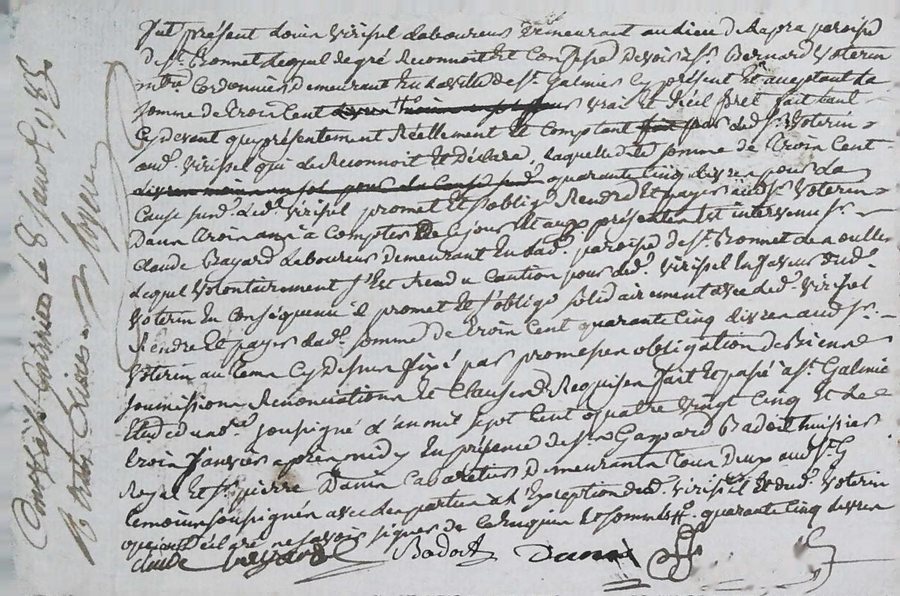 fut présent Louis Virissel Laboureur demeurant au lieu de Rapra paroisse
de St. Bonnet Lequel de gré Reconnoit Et Confesse devoir à Sr. Bernard Voterin
mtre Cordonnier demeurant En la ville de St. Galmier Cy présent Et acceptant la
somme de trois Cent vrai Et Réel prêt fait tant
Cy devant que présentement Réellement Et Comptant par led. Sr. Voterin
aud. Virissel qui La Reconnoit Et Déclare, Laquelle dte somme de trois Cent
quarante Cinq Livres pour la
Cause susd. Led. Virissel promet Et s'oblige Rendre Et payer aud. Sr. Voterin
Dans trois ans à Compter de Ce jour Et aux présentes Est intervenu Sr.
Claude Bayard Laboureur demeurant En lad. paroisse de St. Bonnet
Lequel volontairement s'Est Rendu Caution pour led. Virissel En faveur dud.
Voterin En Conséquence il promet Et s'oblige solidairement avec led. Virissel
Rendre Et payer lad. somme de trois Cent quarante Cinq Livres aud. Sr.
Voterin au tems Cy dessus fixé par promesses obligation de Biens
soumissions Renonciations Et Clauses Requises fait Et passé a St. Galmier
Etude du no.re soussigné L'an mil sept Cent quatre vingt Cinq Et Le
trois Janvier après midy En présence de Sr. Gaspard Badoit huissier
Royal Et Sr. pierre Danis Cabaretier Demeurants tous Deux aud. St. G
temoins soussignés avec les parties a L'Exception dud. Virissel Et dud. Voterin
qui ont déclaré ne savoir signer de Ce Requis Et sommés quarante Cinq Livres
Claude Bayard Badoit Danis
Controlé à St. Galmier le 8 Janv. 1785